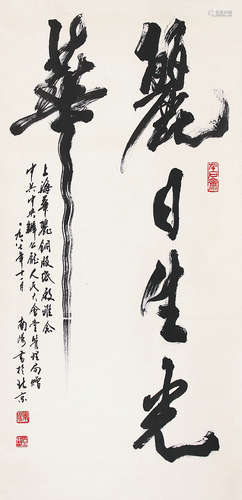 麗日生光
華
上海華麗銅版紙廠雅念
中共中央辦公廳人民大會堂管理局贈
一九八七年十二月 南海書於北京